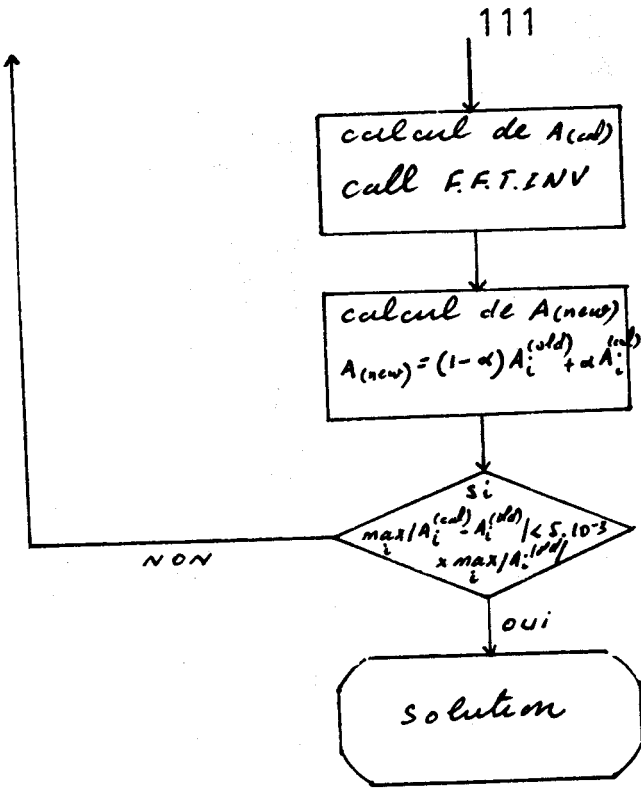 111
calcul de A(cal)
call F.F.T.INV
calcul de A(new)
A(new) = (1-α) A_i^(old) + α A_i^(cal)
si
max_i |A_i^(cal) - A_i^(old)| < 5.10^-3
x max_i |A_i^(old)|
NON
oui
solution